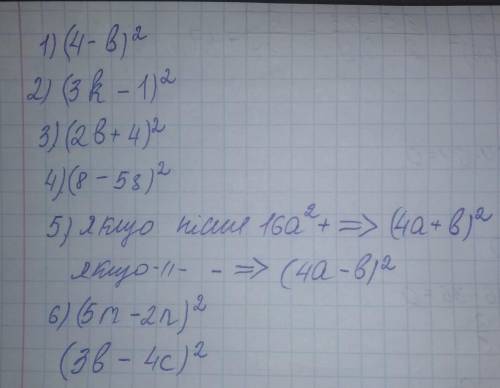 1) (4 - b)²
2) (3k - 1)²
3) (2b + 4)²
4) (8 - 5s)²
5) якщо після 16a² + => (4a + b)²
якщо -"- - => (4a - b)²
6) (5m - 2n)²
(3b - 4c)²